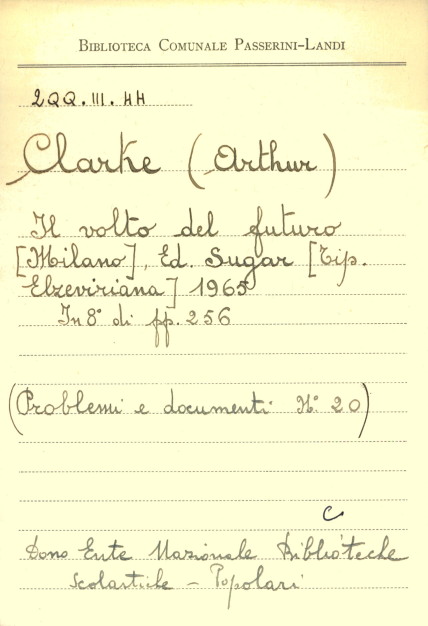 BIBLIOTECA COMUNALE PASSERINI-LANDI
2QQ.III.44
Clarke (Arthur)
Il volto del futuro
[Milano], Ed. Sugar [Tip.
Elzeviriana] 1965
In 8° di pp. 256
(Problemi e documenti N. 20)
C
Dono Ente Nazionale Biblioteche
Scolastiche - Popolari